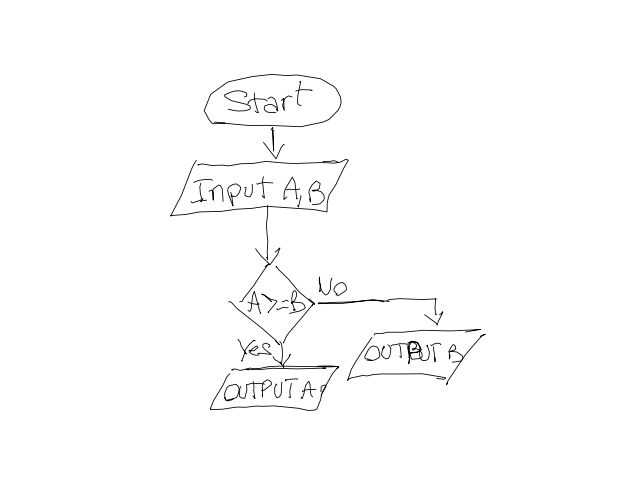 Start
Input A, B
A>=B
No
Yes
OUTPUT B
OUTPUT A